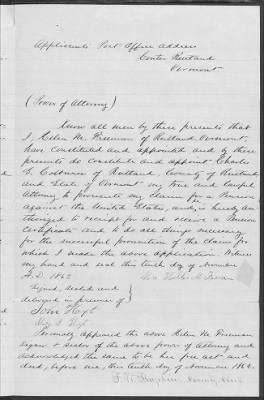 Applicants Post Office Address
Center Rutland
Vermont
(Power of Attorney)
Know all men by these presents that
I, Helen M. Freeman of Rutland, Vermont,
have constituted and appointed and by these
presents do constitute and appoint Charles
C. of Rutland, County of Rutland
and State of Vermont my true and lawful
Attorney to prosecute my claim for a Pension
against the United States, and is hereby au
thorized to receipt for and receive a Pension
Certificate and to do all things necessary
for the successful prosecution of the claim for
which I made the above application. Witness
my hand and seal this tenth day of November
A.D. 1862
Signed, sealed and
delivered in presence of
John
Personally appeared the above Helen M. Freeman
signer & sealer of the above power of Attorney and
acknowledged the same to be her free act and
deed, before me, this tenth day of November 1862.
County Clerk